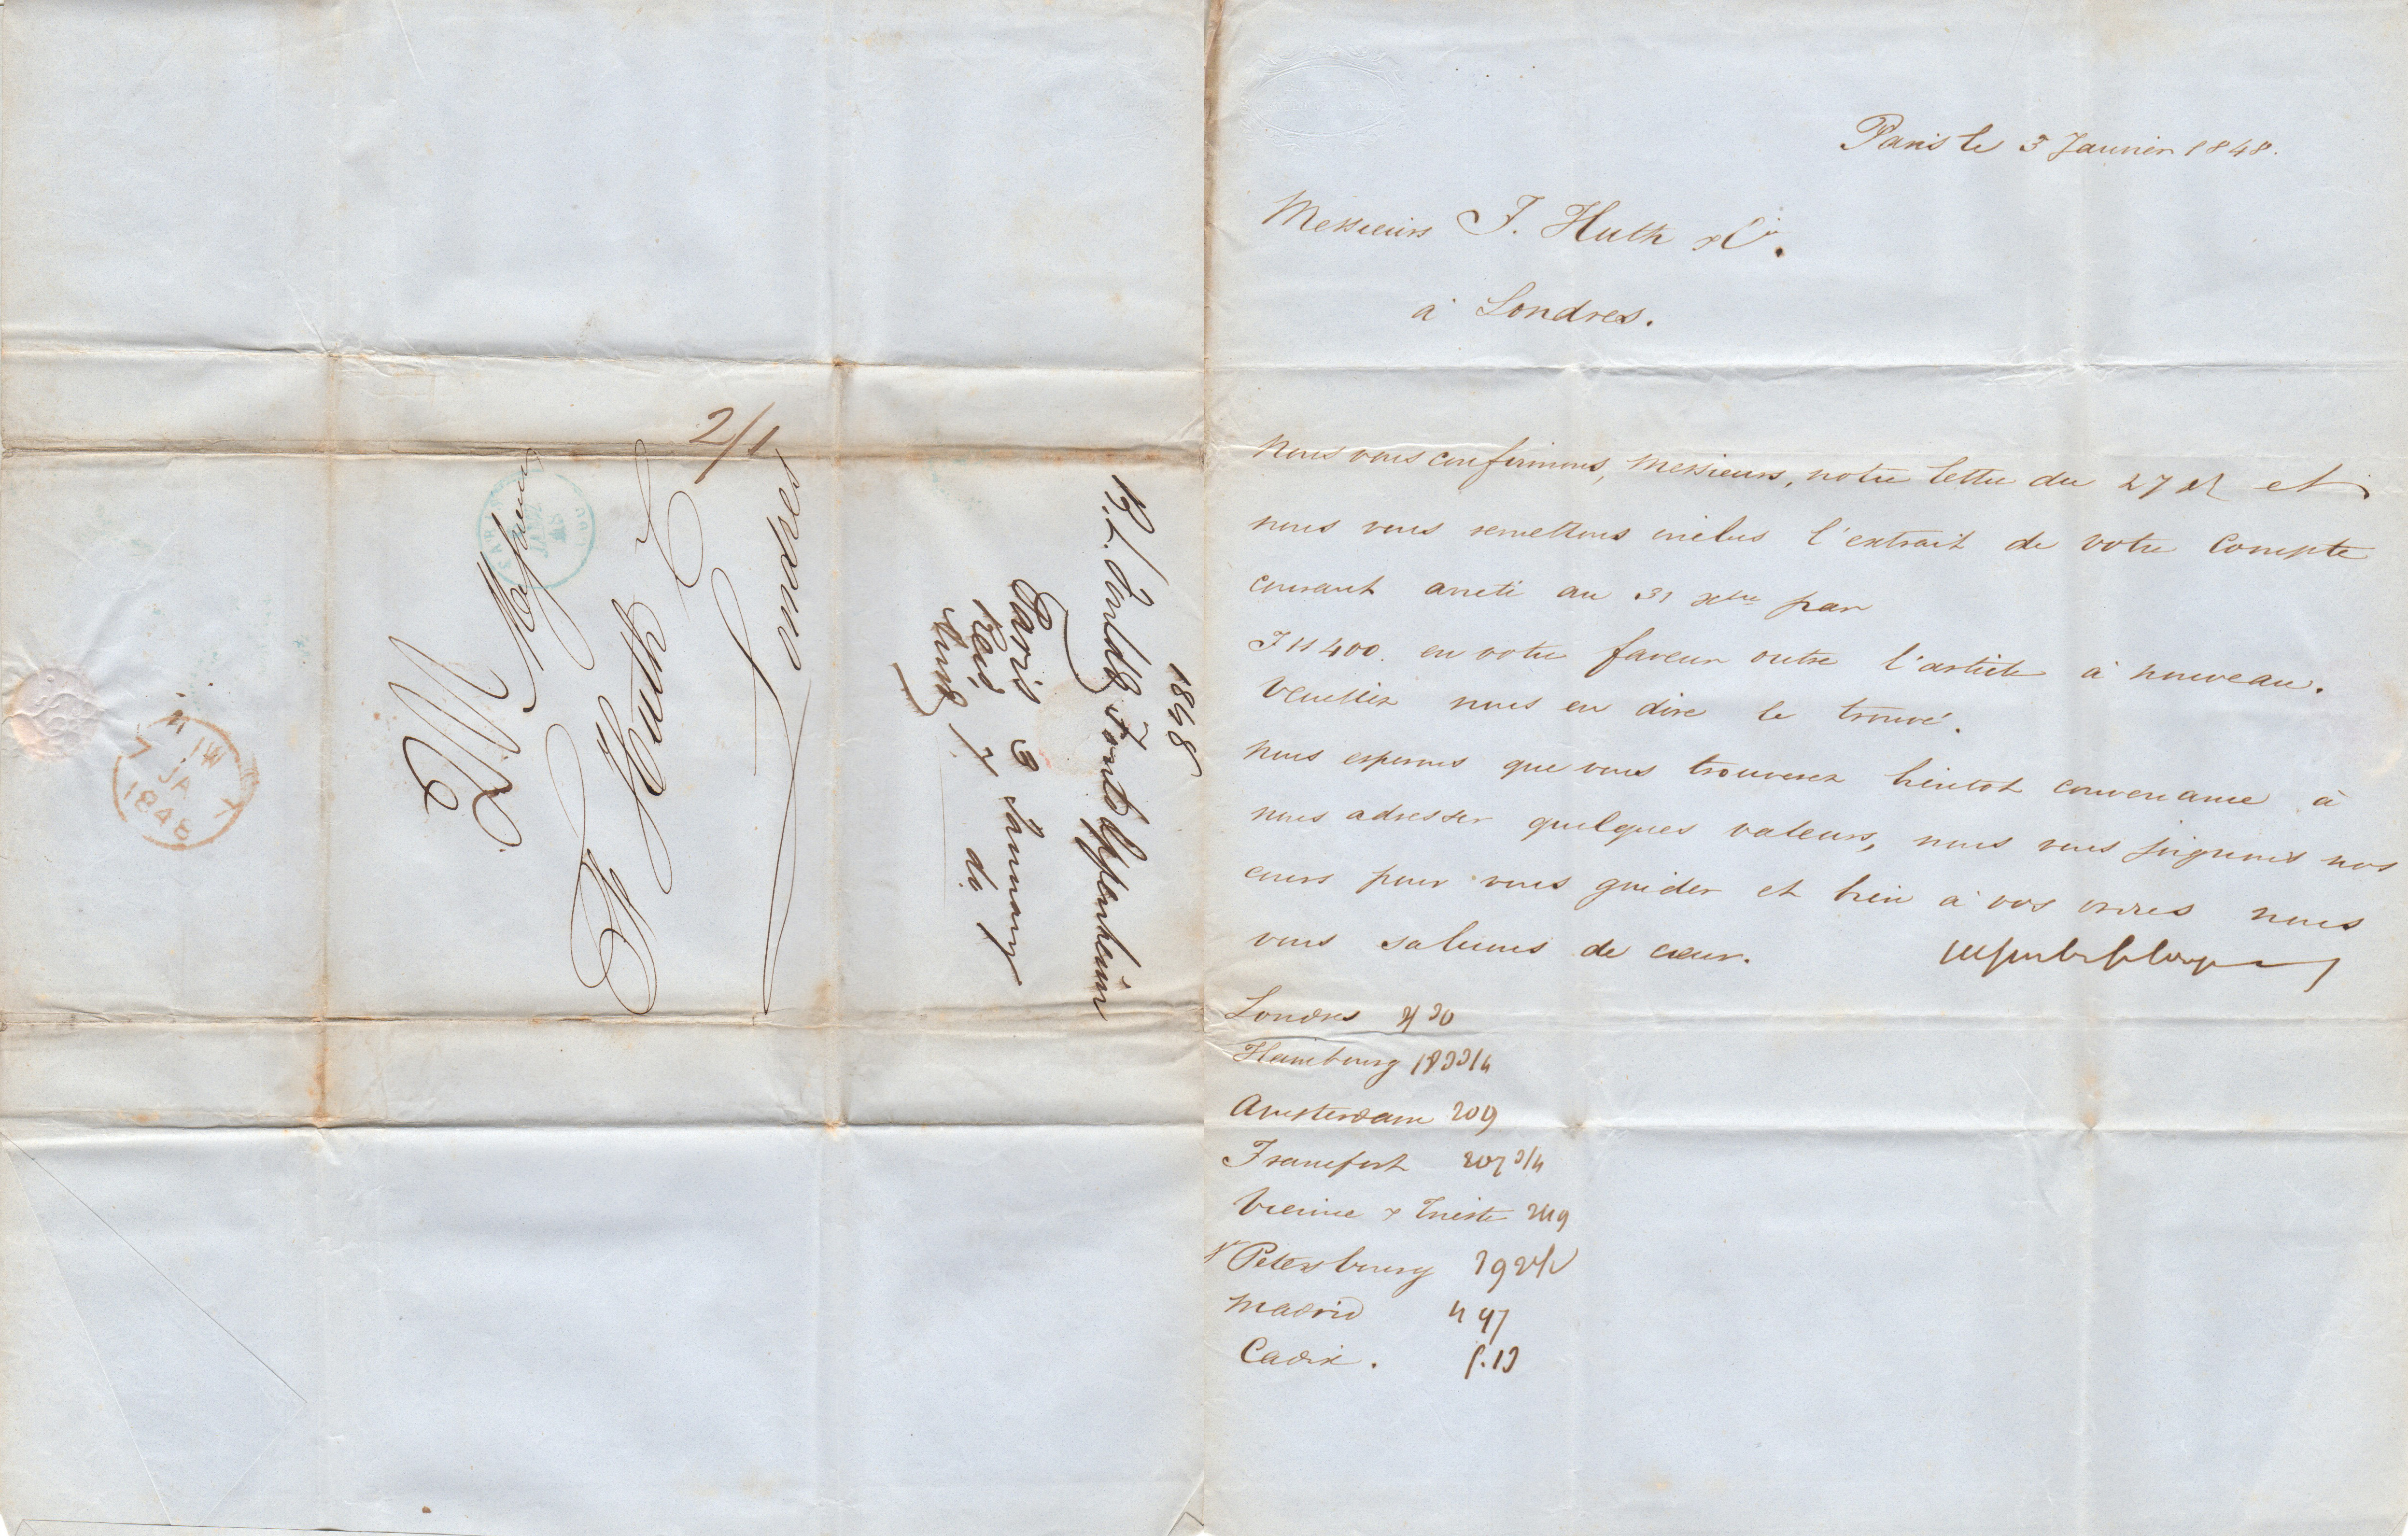 Paris le 3 Janvier 1848.
Messieurs F. Huth & Cie.
à Londres.
Nous vous confirmons, Messieurs, notre lettre du 27 et
nous vous remettons inclus l'extrait de votre Compte
courant arreté au 31 xbre par
F 11400. en votre faveur outre l'article à nouveau.
Veuillez nous en dire le trouvé.
Nous esperons que vous trouverez bientot convenance à
nous adresser quelques valeurs, nous vous joignons nos
cours pour vous guider et bien à vos ordres nous
vous saluons de cœur.
Londres
Hambourg
Amsterdam 209
Francfort 207 3/4
Vienne & Trieste
St Petersbourg
Madrid 4 97
Cadix. 5.13
2/1
Messieurs
F. Huth & C
Londres
1848
B. L. Fould & Fould Oppenheim
Paris 3 January
Rec. 7 do.
7 JA
1848